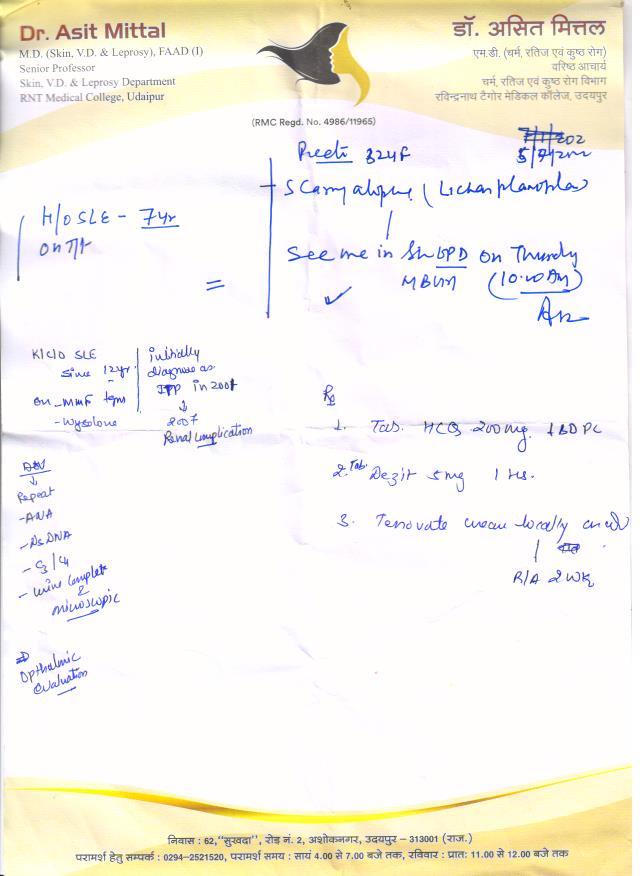 Dr. Asit Mittal
M.D. (Skin, V.D. & Leprosy), FAAD (I)
Senior Professor
Skin, V.D. & Leprosy Department
RNT Medical College, Udaipur
डॉ. असित मित्तल
एम.डी. (चर्म, रतिज एवं कुष्ठ रोग)
वरिष्ठ आचार्य
चर्म, रतिज एवं कुष्ठ रोग विभाग
रविन्द्रनाथ टैगोर मेडिकल कॉलेज, उदयपुर
(RMC Regd. No. 4986/11965)
Preeti 32yF
(Lichen planopla)
H/O SLE - 7yr
on T/t
See me in OPD on
(10:00 AM)
K/C/O SLE
since 12yr
on - MMF
- Wysolone
initially
diagnose as
ITP in 2001
↓
2007
Renal complication
Adv
↓
Repeat
- ANA
- DsDNA
- C3/C4
- Urine complete
&
microscopic
Opthalmic
evaluation
Rx
1. Tab. HCQ 200mg 1 BD PC
2. Tab. Dezit 5mg 1 HS.
3. Tenovate cream locally
R/A 2 WK
निवास : 62,"सुखदा", रोड़ नं. 2, अशोकनगर, उदयपुर – 313001 (राज.)
परामर्श हेतु सम्पर्क : 0294-2521520, परामर्श समय : सायं 4.00 से 7.00 बजे तक, रविवार : प्रातः 11.00 से 12.00 बजे तक